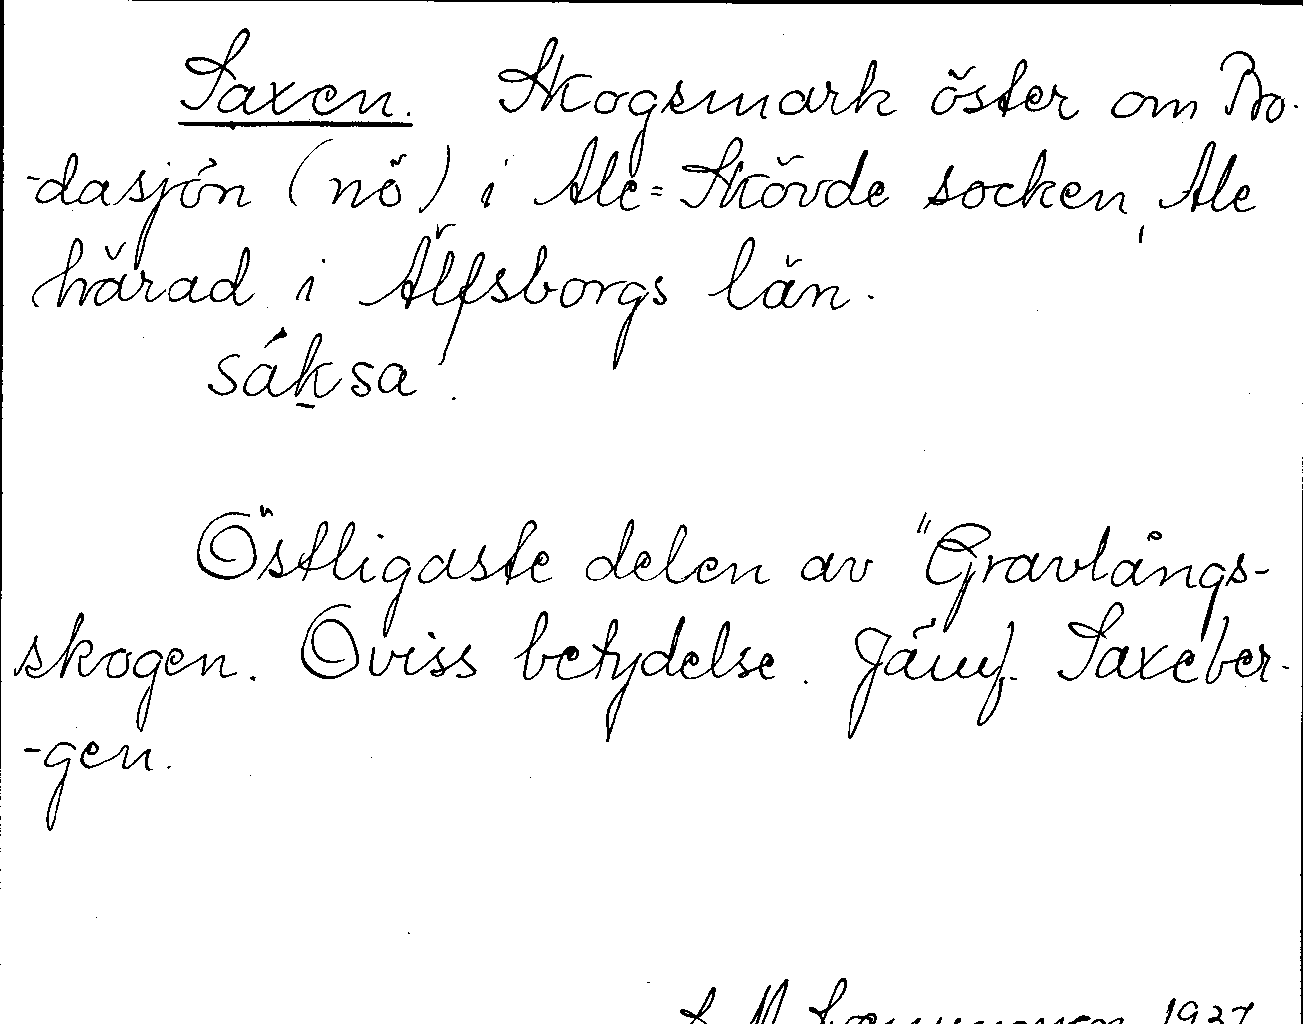 Saxen. Skogsmark öster om Bo-
-dasjön (nö) i Ale=Skövde socken, Ale
härad i Älfsborgs län.
sáksa.
Östligaste delen av "Gravlångs-
skogen. Oviss betydelse. Jämf. Saxeber-
-gen.
1927